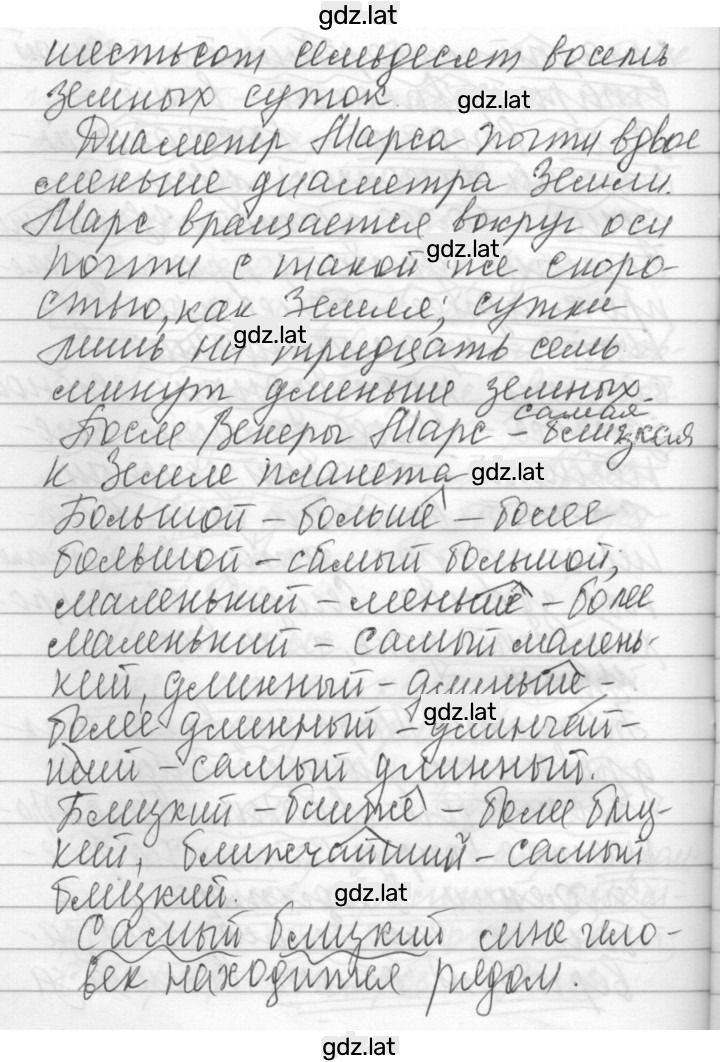 gdz.lat
шестьсот семьдесят восемь
земных суток. gdz.lat
Диаметр Марса почти вдвое
меньше диаметра Земли.
Марс вращается вокруг оси
gdz.lat
почти с такой же скоро-
стью, как Земля; сутки
gdz.lat
лишь на тридцать семь
минут дленьше земных.
самая
После Венеры Марс – близкая
к Земле планета gdz.lat
Большой – больше – более
большой – самый большой;
маленький – меньше – более
маленький – самый малень-
кий, длинный – дленьше –
gdz.lat
более длинный – длинчай-
ший – самый длинный.
Близкий – ближе – более близ-
кий, ближчайший – самый
близкий. gdz.lat
Самый близкий мне чело-
век находится рядом.
gdz.lat